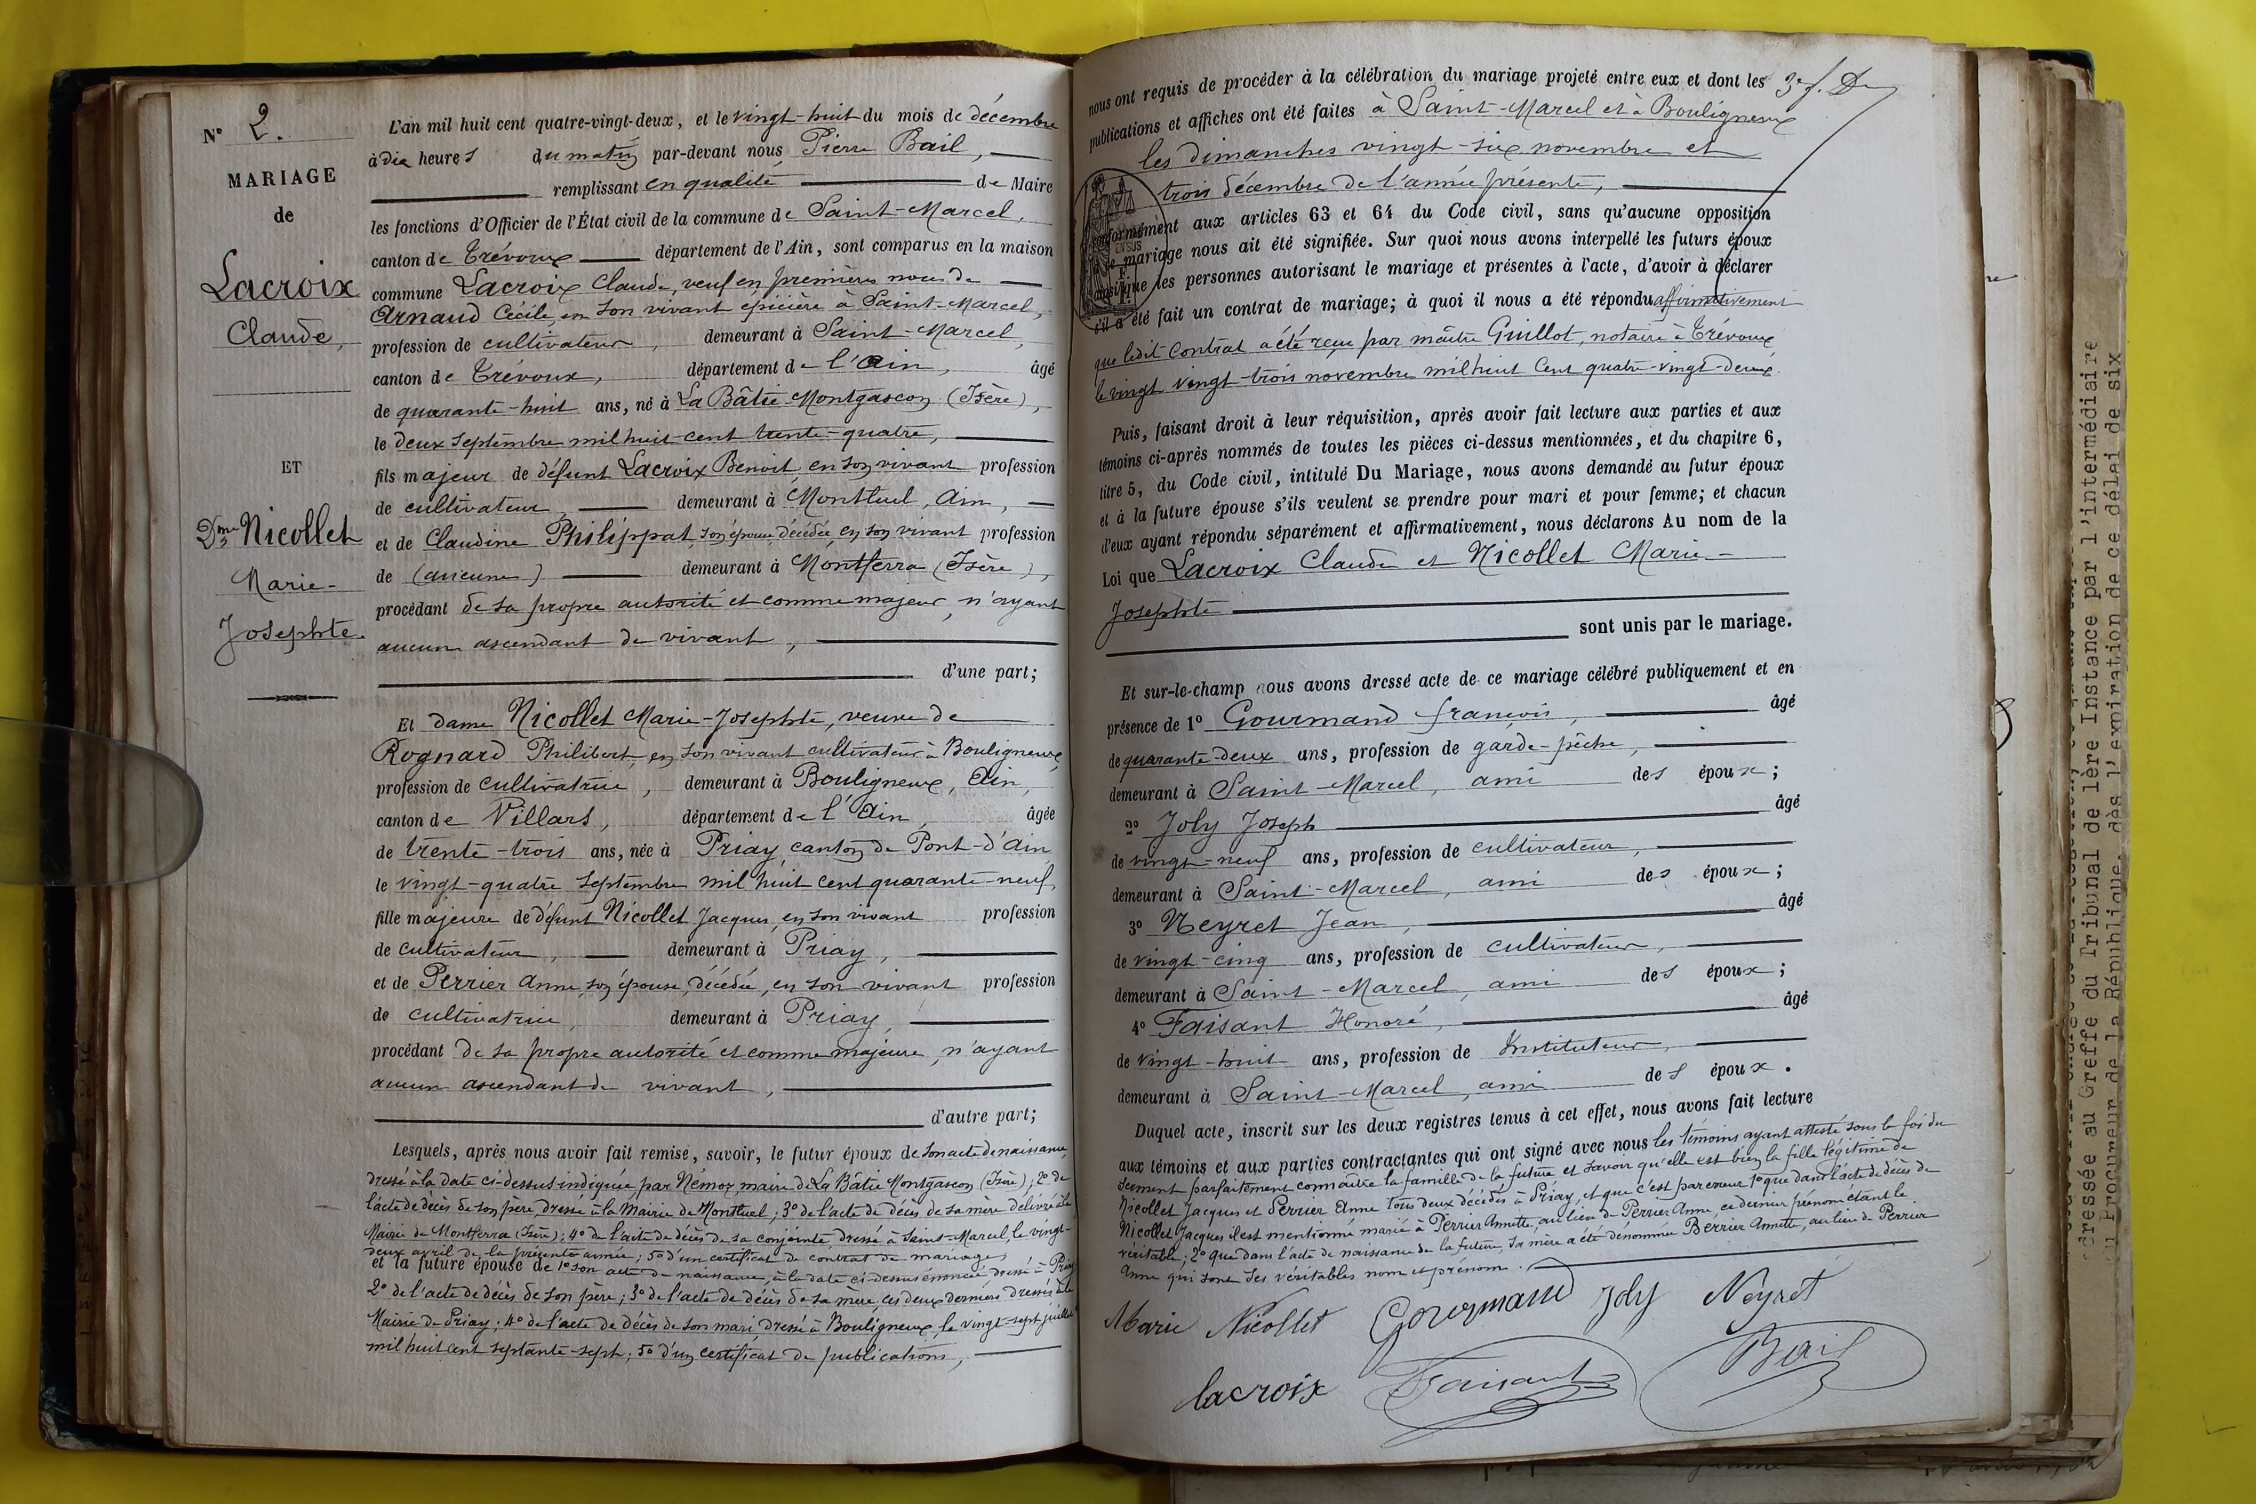 N° 2.
MARIAGE
de
Lacroix
Claude,
ET
Dme Nicollet
Marie-
Josephte.
L'an mil huit cent quatre-vingt-deux, et le vingt-huit du mois de décembre
à dix heures du matin par-devant nous Pierre Bail,
remplissant en qualité de Maire
les fonctions d'Officier de l'État civil de la commune de Saint-Marcel,
canton de Trévoux département de l'Ain, sont comparus en la maison
commune Lacroix Claude, veuf en premières noces de
Arnaud Cécile, en son vivant épicière à Saint-Marcel,
profession de cultivateur, demeurant à Saint-Marcel,
canton de Trévoux, département de l'Ain, âgé
de quarante-huit ans, né à La Bâtie-Montgascon (Isère),
le deux septembre mil huit cent trente-quatre,
fils majeur de défunt Lacroix Benoit, en son vivant profession
de cultivateur, demeurant à Montluel, Ain,
et de Claudine Philippat, son épouse décédée, en son vivant profession
de (aucune) demeurant à Montferra (Isère),
procédant de sa propre autorité et comme majeur, n'ayant
aucun ascendant de vivant,
d'une part;
Et dame Nicollet Marie-Josephte, veuve de
Rognard Philibert, en son vivant cultivateur à Bouligneux,
profession de cultivatrice, demeurant à Bouligneux, Ain,
canton de Villars, département de l'Ain, âgée
de trente-trois ans, née à Priay, canton de Pont-d'Ain
le vingt-quatre septembre mil huit cent quarante-neuf,
fille majeure de défunt Nicollet Jacques, en son vivant profession
de cultivateur, demeurant à Priay,
et de Perrier Anne, son épouse, décédée, en son vivant profession
de cultivatrice, demeurant à Priay,
procédant de sa propre autorité et comme majeure, n'ayant
aucun ascendant de vivant,
d'autre part;
Lesquels, après nous avoir fait remise, savoir, le futur époux de son acte de naissance
dressé à la date ci-dessus indiquée par Némoz, maire de La Bâtie Montgascon (Isère); 2° de
l'acte de décès de son père, dressé à la Mairie de Montluel; 3° de l'acte de décès de sa mère délivré à la
Mairie de Montferra (Isère); 4° de l'acte de décès de sa conjointe dressé à Saint-Marcel, le vingt-
deux avril de la présente année; 5° d'un certificat de contrat de mariage,
et la future épouse de 1° son acte de naissance, à la date ci-dessus énoncée dressé à Priay
2° de l'acte de décès de son père; 3° de l'acte de décès de sa mère, ces deux derniers dressés à la
Mairie de Priay; 4° de l'acte de décès de son mari, dressé à Bouligneux, le vingt-sept juillet
mil huit cent septante-sept; 5° d'un certificat de publications,
nous ont requis de procéder à la célébration du mariage projeté entre eux et dont les
publications et affiches ont été faites à Saint-Marcel et à Bouligneux
les dimanches vingt-six novembre et
trois décembre de l'année présente,
conformément aux articles 63 et 64 du Code civil, sans qu'aucune opposition
à ce mariage nous ait été signifiée. Sur quoi nous avons interpellé les futurs époux
ainsi que les personnes autorisant le mariage et présentes à l'acte, d'avoir à déclarer
s'il a été fait un contrat de mariage; à quoi il nous a été répondu affirmativement
que ledit contrat a été reçu par maître Guillot, notaire à Trévoux
le vingt vingt-trois novembre mil huit cent quatre-vingt-deux.
Puis, faisant droit à leur réquisition, après avoir fait lecture aux parties et aux
témoins ci-après nommés de toutes les pièces ci-dessus mentionnées, et du chapitre 6,
titre 5, du Code civil, intitulé Du Mariage, nous avons demandé au futur époux
et à la future épouse s'ils veulent se prendre pour mari et pour femme; et chacun
d'eux ayant répondu séparément et affirmativement, nous déclarons Au nom de la
Loi que Lacroix Claude et Nicollet Marie-
Josephte
sont unis par le mariage.
Et sur-le-champ nous avons dressé acte de ce mariage célébré publiquement et en
présence de 1° Gourmand françois, âgé
de quarante-deux ans, profession de garde-pêche,
demeurant à Saint-Marcel, ami des époux;
2° Joly Joseph âgé
de vingt-neuf ans, profession de cultivateur,
demeurant à Saint-Marcel, ami des époux;
3° Neyret Jean, âgé
de vingt-cinq ans, profession de cultivateur,
demeurant à Saint-Marcel, ami des époux;
4° Faisant Honoré, âgé
de vingt-huit ans, profession de Instituteur,
demeurant à Saint-Marcel, ami des époux.
Duquel acte, inscrit sur les deux registres tenus à cet effet, nous avons fait lecture
aux témoins et aux parties contractantes qui ont signé avec nous les témoins ayant attesté sous la foi du
serment parfaitement connaître la famille de la future et savoir qu'elle est bien la fille légitime de
Nicollet Jacques et Perrier Anne tous deux décédés à Priay, et que c'est par erreur 1° que dans l'acte de décès de
Nicollet Jacques il est mentionné marié à Perrier Annette, au lieu de Perrier Anne, ce dernier prénom étant le
véritable; 2° que dans l'acte de naissance de la future, sa mère a été dénommée Berrier Annette, au lieu de Perrier
Anne qui sont ses véritables nom et prénom.
Marie Nicollet Gourmand Joly Neyret
lacroix Faisant Bail
dressée au Greffe du Tribunal de 1ère Instance par l'intermédiaire
du Procureur de la République, dès l'expiration de ce délai de six